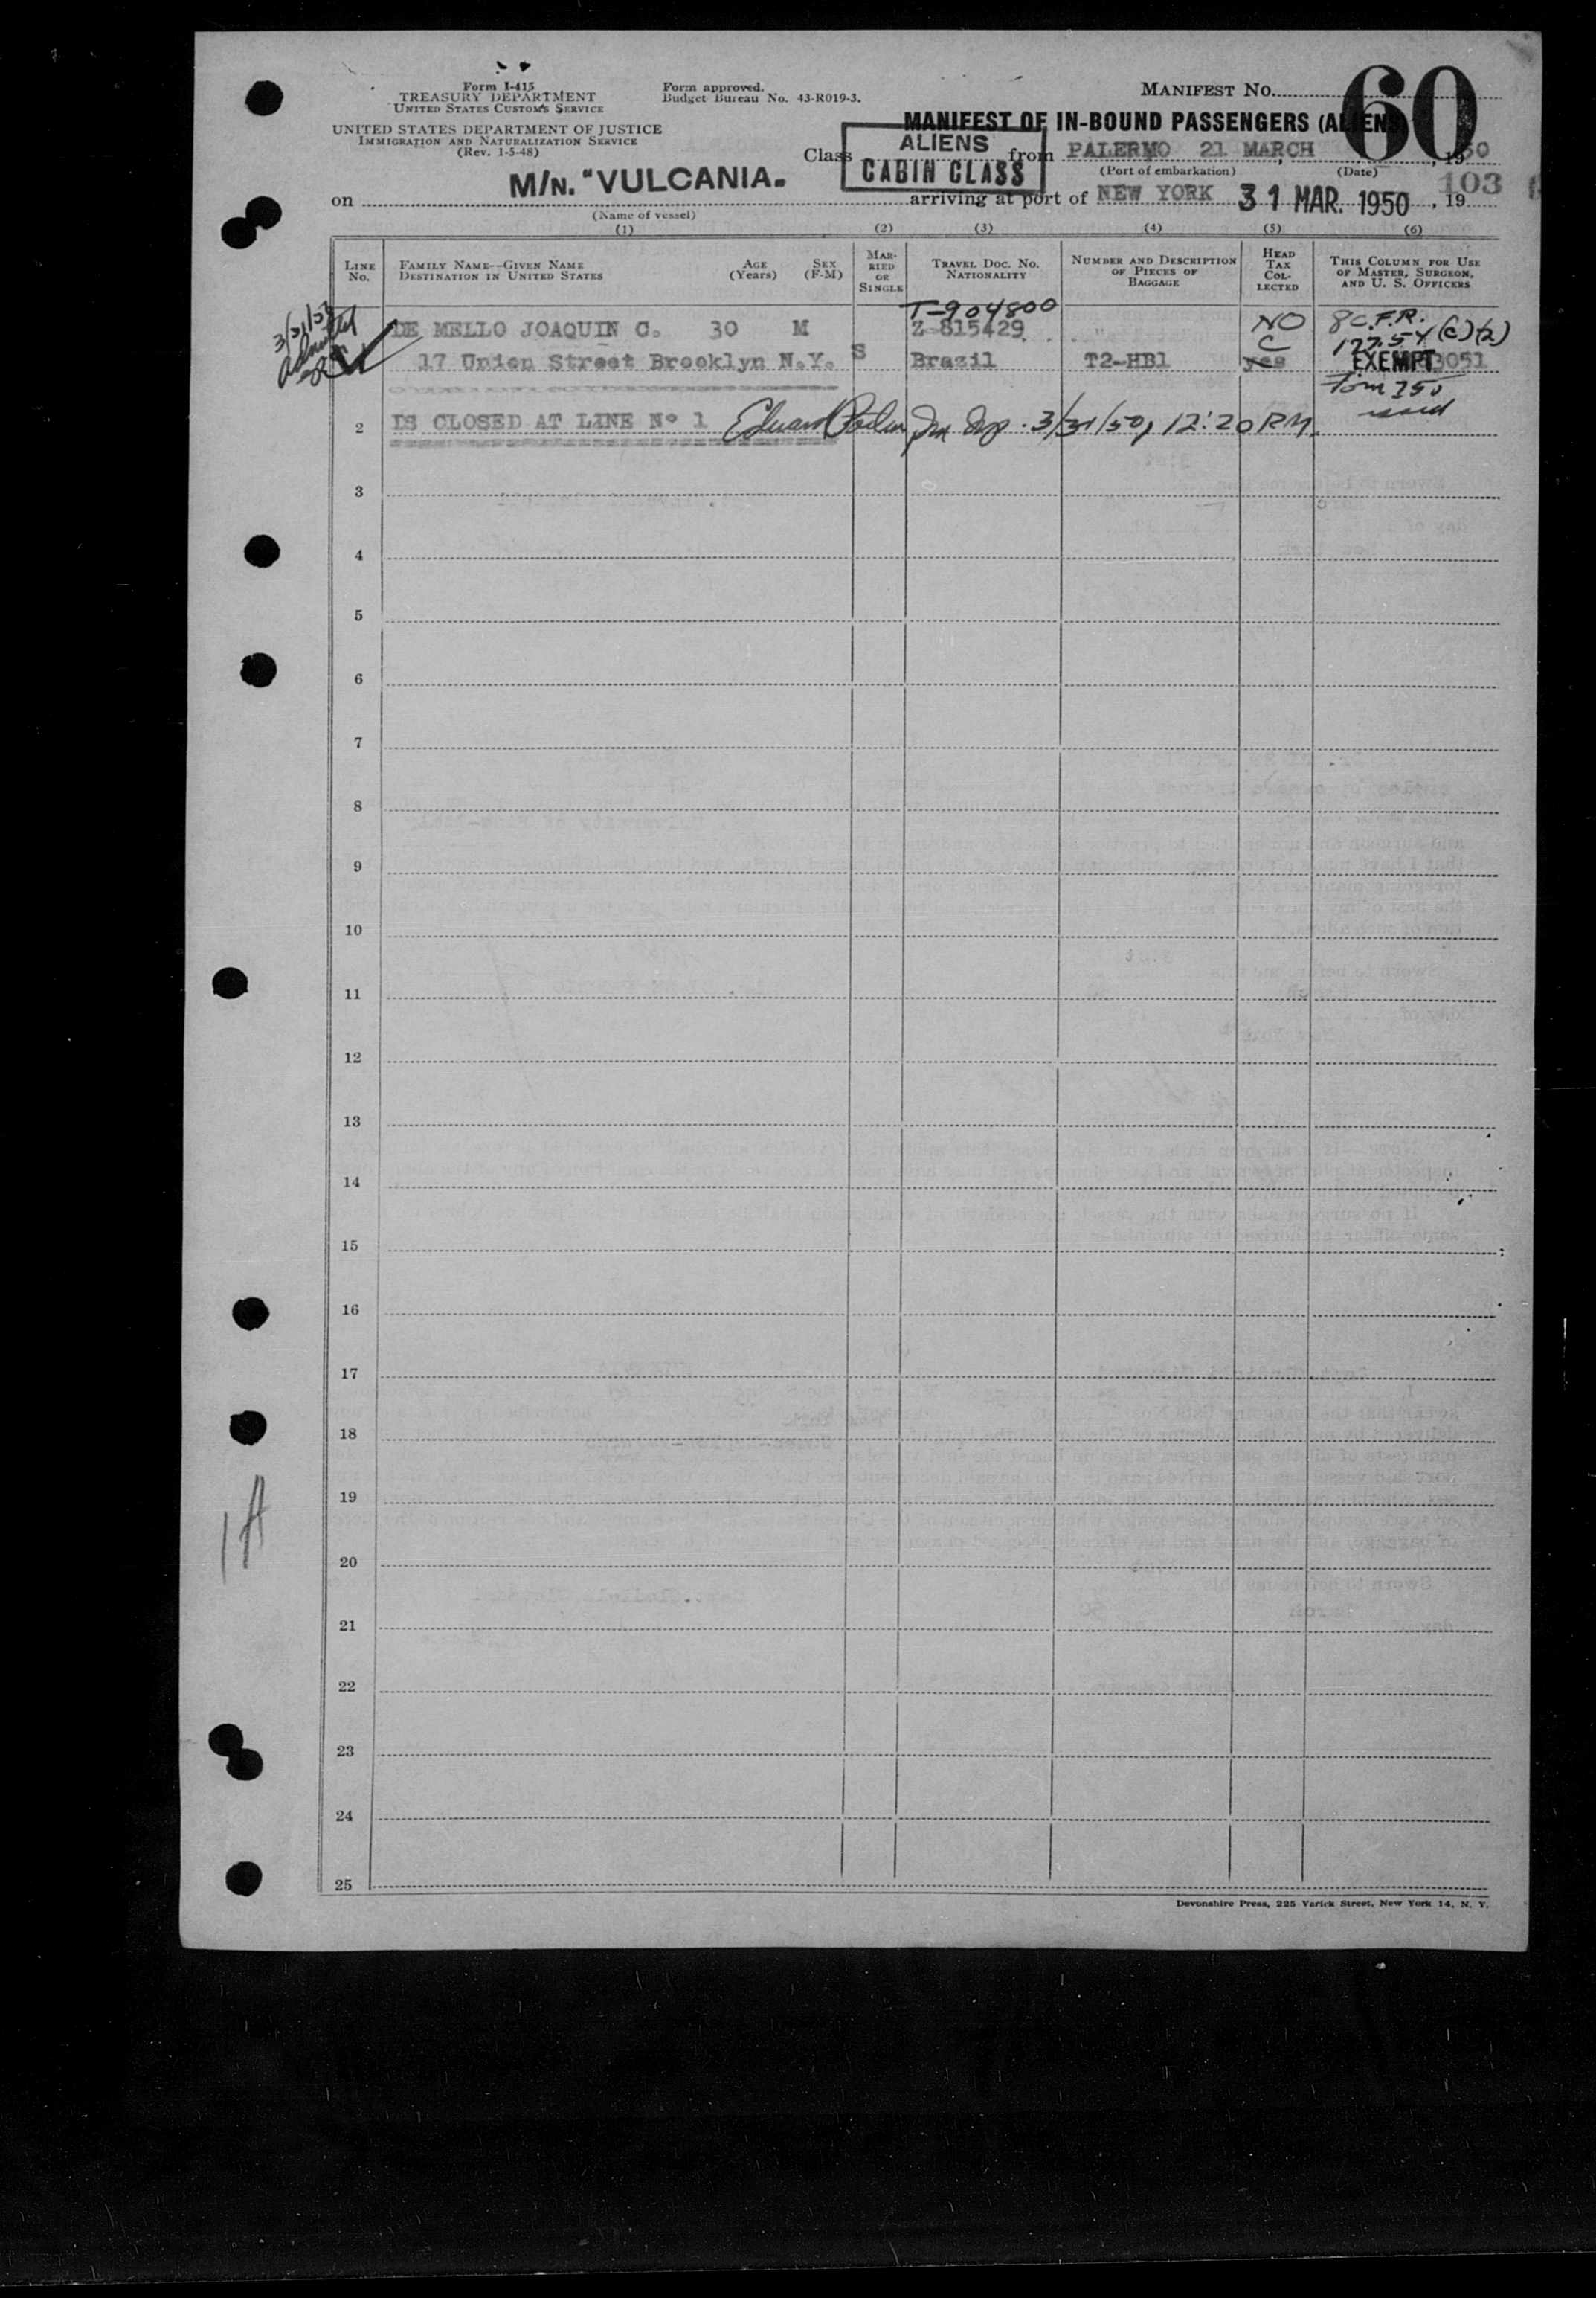 Form I-415
TREASURY DEPARTMENT
UNITED STATES CUSTOMS SERVICE
UNITED STATES DEPARTMENT OF JUSTICE
IMMIGRATION AND NATURALIZATION SERVICE
(Rev. 1-5-48)
Form approved.
Budget Bureau No. 43-R019-3.
MANIFEST No. 60
MANIFEST OF IN-BOUND PASSENGERS (ALIENS)
Class ALIENS CABIN CLASS from PALERMO 21 MARCH, 1950
(Port of embarkation) (Date)
103
on M/N. "VULCANIA. arriving at port of NEW YORK 31 MAR. 1950, 19
(Name of vessel)
(1) (2) (3) (4) (5) (6)
LINE No. FAMILY NAME—GIVEN NAME DESTINATION IN UNITED STATES AGE (Years) SEX (F-M) MARRIED OR SINGLE TRAVEL DOC. NO. NATIONALITY NUMBER AND DESCRIPTION OF PIECES OF BAGGAGE HEAD TAX COLLECTED THIS COLUMN FOR USE OF MASTER, SURGEON, AND U. S. OFFICERS
T-904800
3/31/50 Admitted
DE MELLO JOAQUIN C. 30 M Z 815429 NO 8 C.F.R.
C 127.54 (c)(2)
17 Union Street Brooklyn N.Y. S Brazil T2-HB1 yes EXEMPT 3051
Form 250 issued
2 IS CLOSED AT LINE Nº 1 Edward Imm Insp. 3/31/50, 12:20 P.M.
3
4
5
6
7
8
9
10
11
12
13
14
15
16
17
18
19
20
21
22
23
24
25
1A
Devonshire Press, 225 Varick Street, New York 14, N. Y.